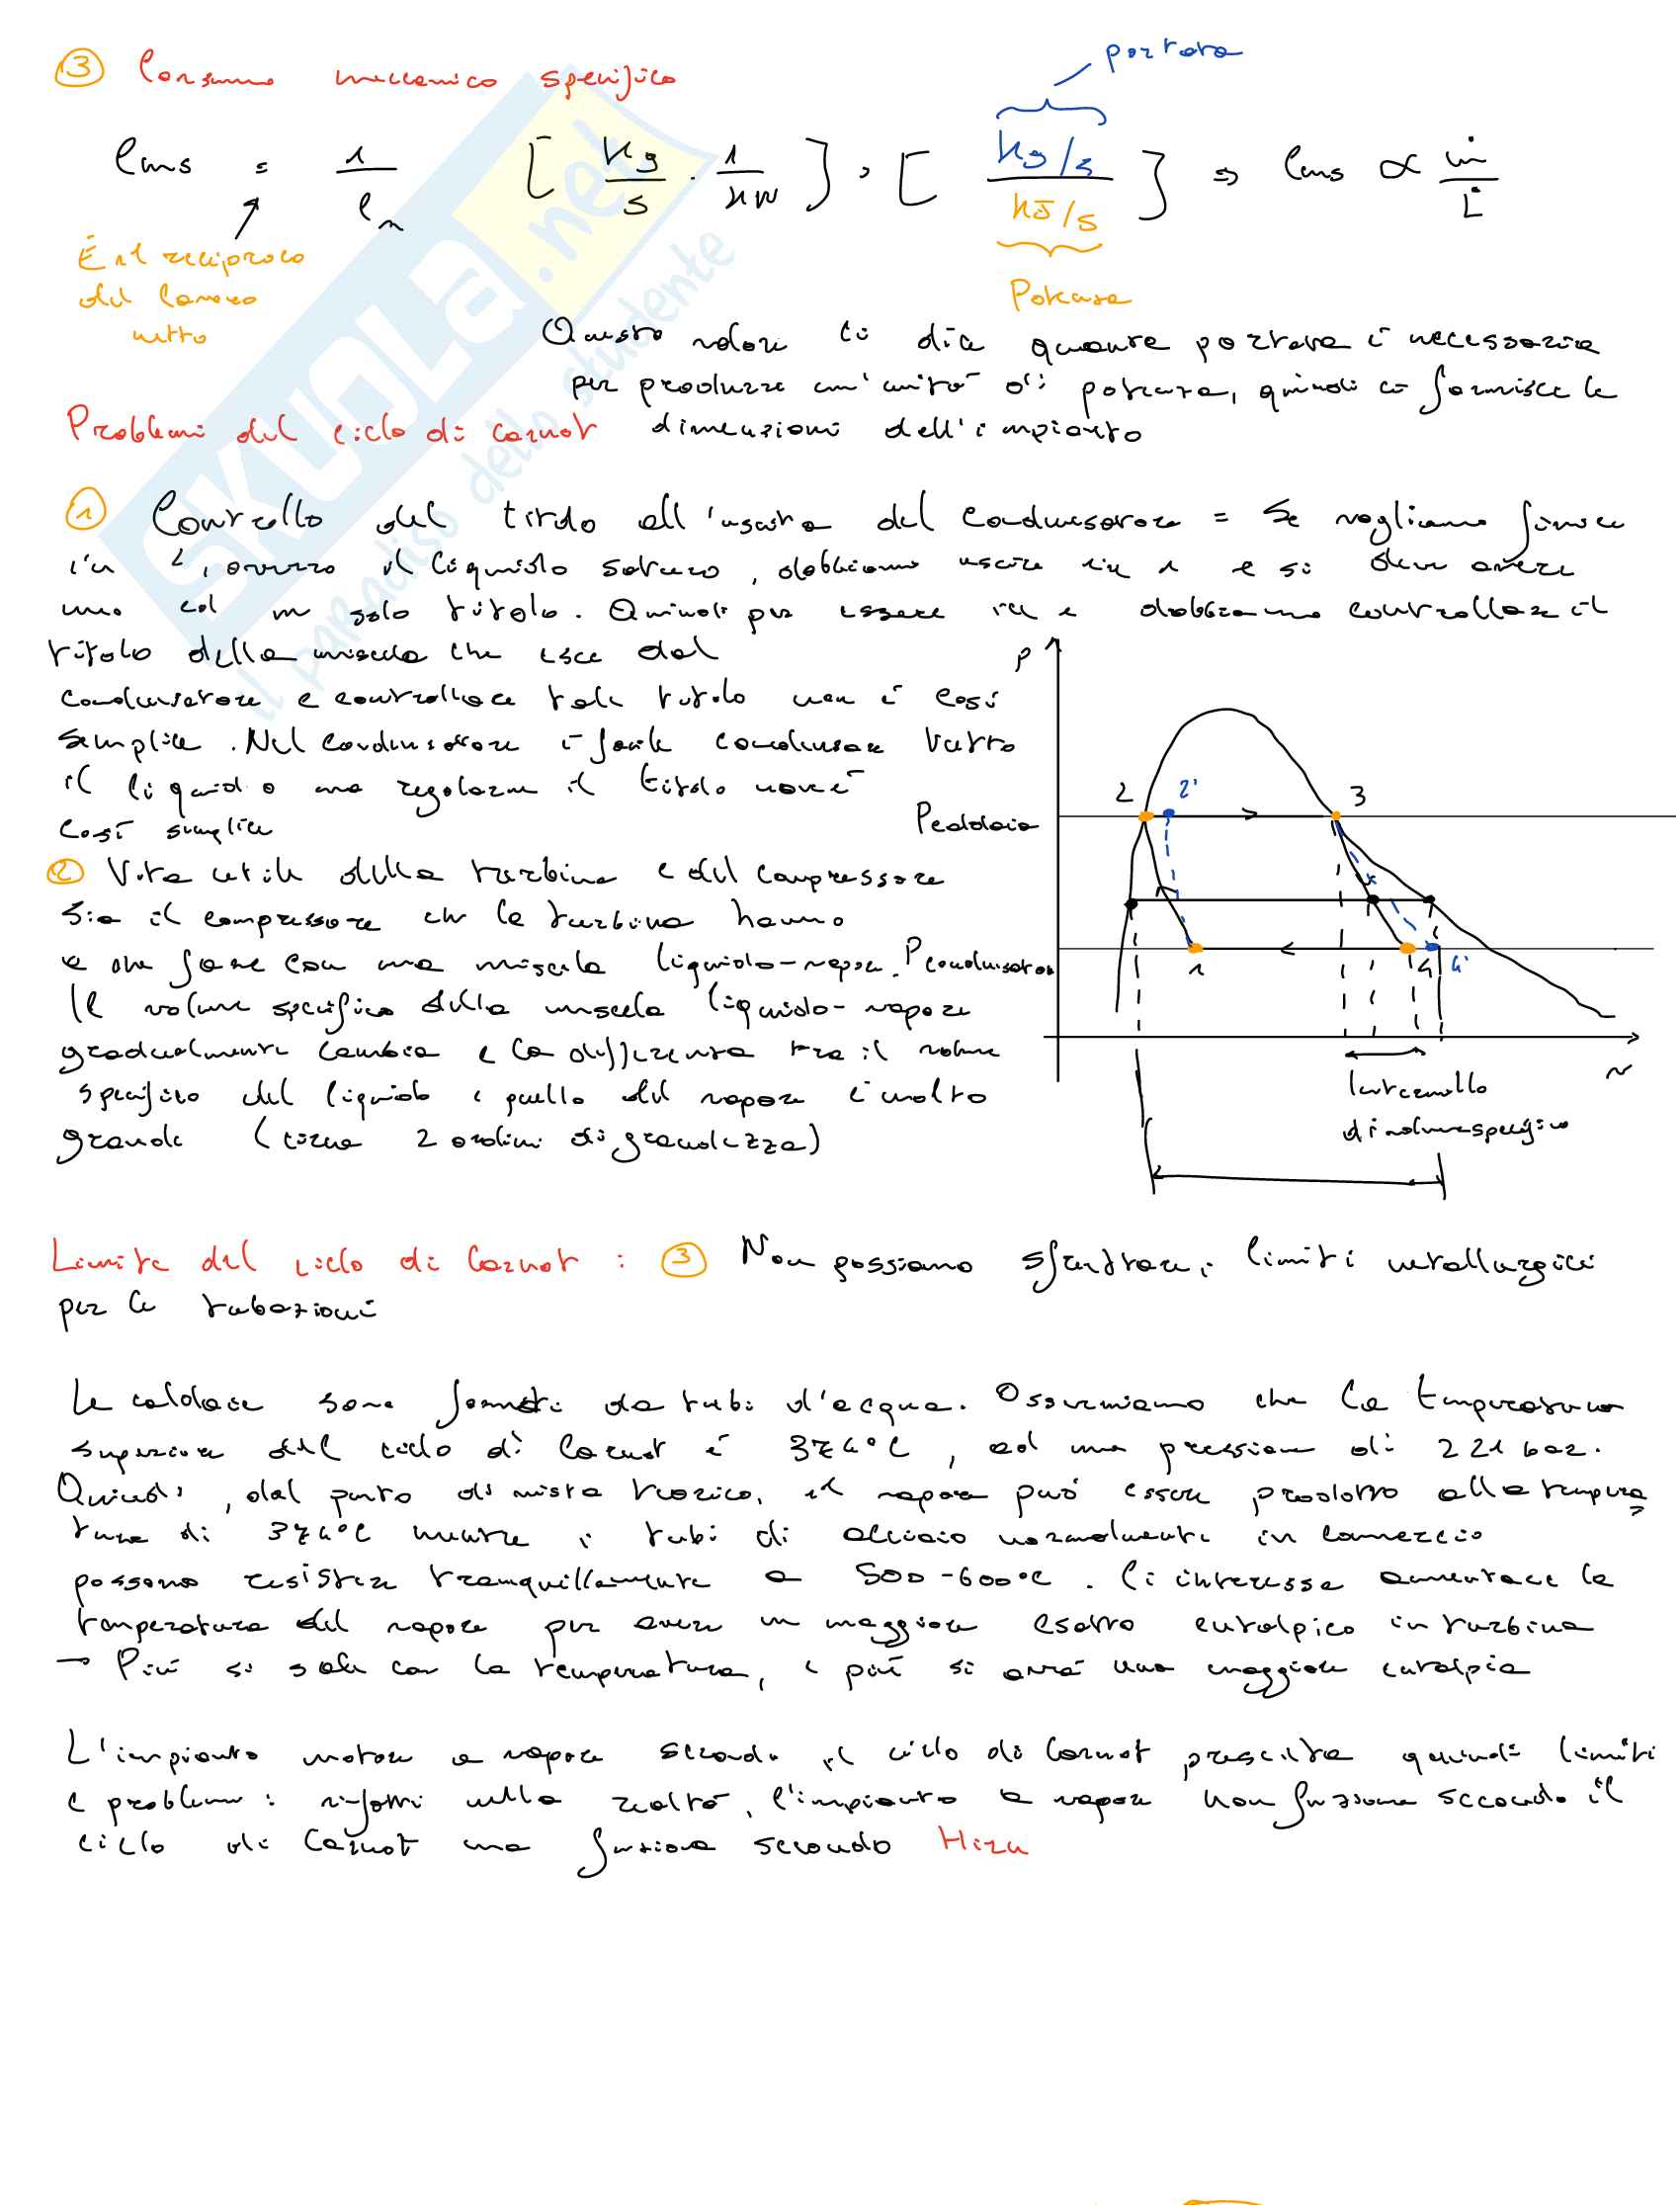 portata
③ Consumo meccanico specifico
Cms = 1/ln [kg/s · 1/kW] = [kg/s / kJ/s] ⇒ Cms ∝ ṁ/L
È il reciproco
del lavoro
netto
Potenza
Questo valore ci dice quante portata è necessaria
per produrre un'unità di potenza, quindi ci fornisce le
dimensioni dell'impianto
Problemi del ciclo di Carnot
① Controllo del titolo all'uscita del condensatore = Se vogliamo finire
in 2, ovvero il liquido saturo, dobbiamo uscire in 1 e si deve avere
uno ed un solo titolo. Quindi per essere in 1 dobbiamo controllare il
titolo della miscela che esce dal
condensatore e controllare tale titolo non è così
semplice. Nel condensatore è facile condensare tutto
il liquido ma regolarne il titolo non è
così semplice
② Vita utile della turbina e del compressore
Sia il compressore che la turbina hanno
a che fare con una miscela liquido-vapore.
Il volume specifico della miscela liquido-vapore
gradualmente cambia e la differenza tra il volume
specifico del liquido e quello del vapore è molto
grande (circa 2 ordini di grandezza)
P
2 2' 3
Pcaldaia
Pcondensatore
1 4 4'
v
Intervallo
di volume specifico
Limite del ciclo di Carnot : ③ Non possiamo sfruttare i limiti metallurgici
per le tubazioni
Le caldaie sono formate da tubi d'acqua. Osserviamo che la temperatura
superiore del ciclo di Carnot è 374°C, ad una pressione di 221 bar.
Quindi, dal punto di vista teorico, il vapore può essere prodotto alla tempera
tura di 374°C mentre i tubi di acciaio normalmente in commercio
possono resistere tranquillamente a 500-600°C. Ci interessa aumentare la
temperatura del vapore per avere un maggiore salto entalpico in turbina
→ Più si sale con la temperatura, e più si avrà una maggiore entalpia
L'impianto motore a vapore secondo il ciclo di Carnot presenta quindi limiti
e problemi: infatti nella realtà, l'impianto a vapore non funziona secondo il
ciclo di Carnot ma funziona secondo Hirn
SKUOLA.net
il paradiso dello studente